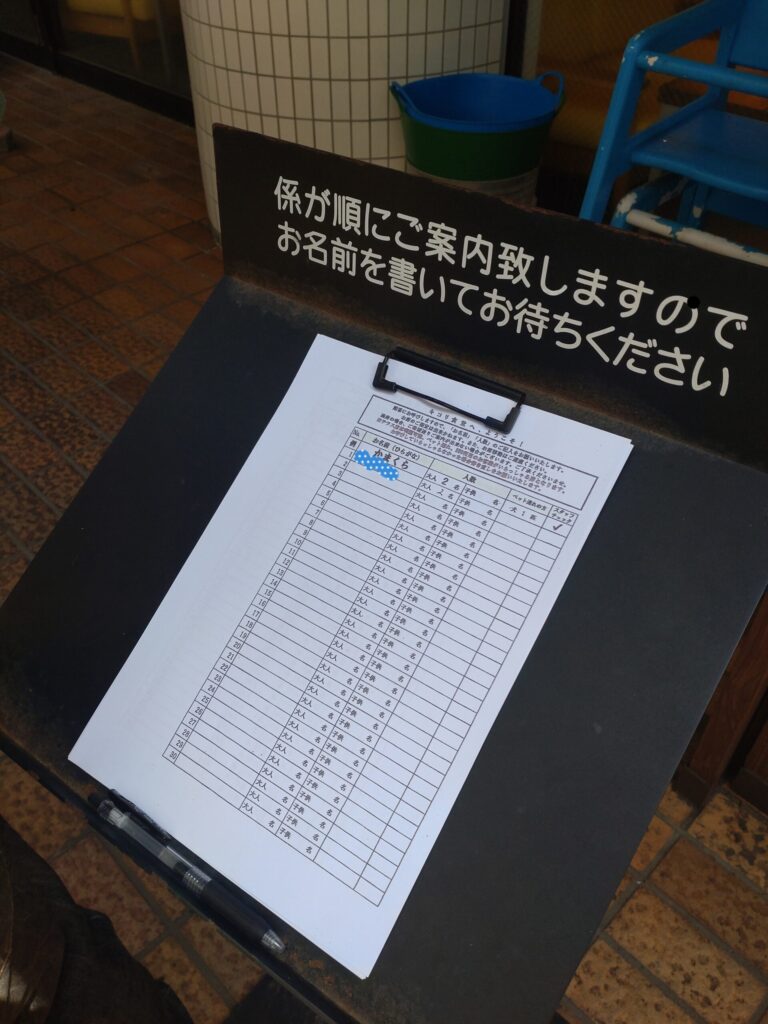 係が順にご案内致しますので
お名前を書いてお待ちください
キコリ食堂へ、ようこそ!
No. お名前(ひらがな) 人数 ペット連れの方 スタッフチェック
例 かまくら 大人 2 名 子供 名 犬 1 匹 ✓
1 大人 2 名 子供 名
2 大人 名 子供 名
3 大人 名 子供 名
4 大人 名 子供 名
5 大人 名 子供 名
6 大人 名 子供 名
7 大人 名 子供 名
8 大人 名 子供 名
9 大人 名 子供 名
10 大人 名 子供 名
11 大人 名 子供 名
12 大人 名 子供 名
13 大人 名 子供 名
14 大人 名 子供 名
15 大人 名 子供 名
16 大人 名 子供 名
17 大人 名 子供 名
18 大人 名 子供 名
19 大人 名 子供 名
20 大人 名 子供 名
21 大人 名 子供 名
22 大人 名 子供 名
23 大人 名 子供 名
24 大人 名 子供 名
25 大人 名 子供 名
26 大人 名 子供 名
27 大人 名 子供 名
28 大人 名 子供 名
29 大人 名 子供 名
30 大人 名 子供 名